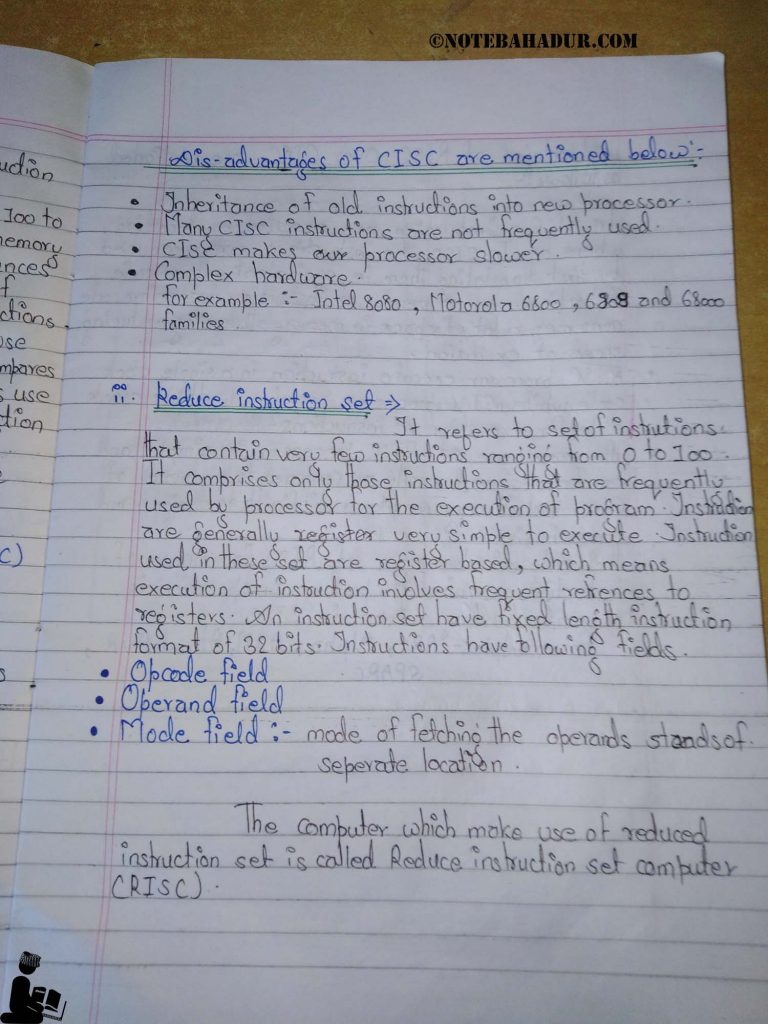 ©NOTEBAHADUR.COM
Dis-advantages of CISC are mentioned below:-
• Inheritance of old instructions into new processor.
• Many CISC instructions are not frequently used.
• CISC makes our processor slower.
• Complex hardware.
for example :- Intel 8080, Motorola 6800, 6808 and 68000
families.
ii. Reduce instruction set ⇒
It refers to set of instrutions.
that contain very few instructions ranging from 0 to 100.
It comprises only those instructions that are frequently
used by processor for the execution of program. Instruction
are generally register very simple to execute. Instruction
used in these set are register based, which means
execution of instruction involves frequent refrences to
registers. An instruction set have fixed length instruction
format of 32 bits. Instructions have following fields.
• Opcode field
• Operand field
• Mode field :- mode of fetching the operands stands of
seperate location.
The computer which make use of reduced
instruction set is called Reduce instruction set computer
(RISC).
uction
100 to
nemory
nces
f
ctions.
ose
mpares
s use
tion
C)
s